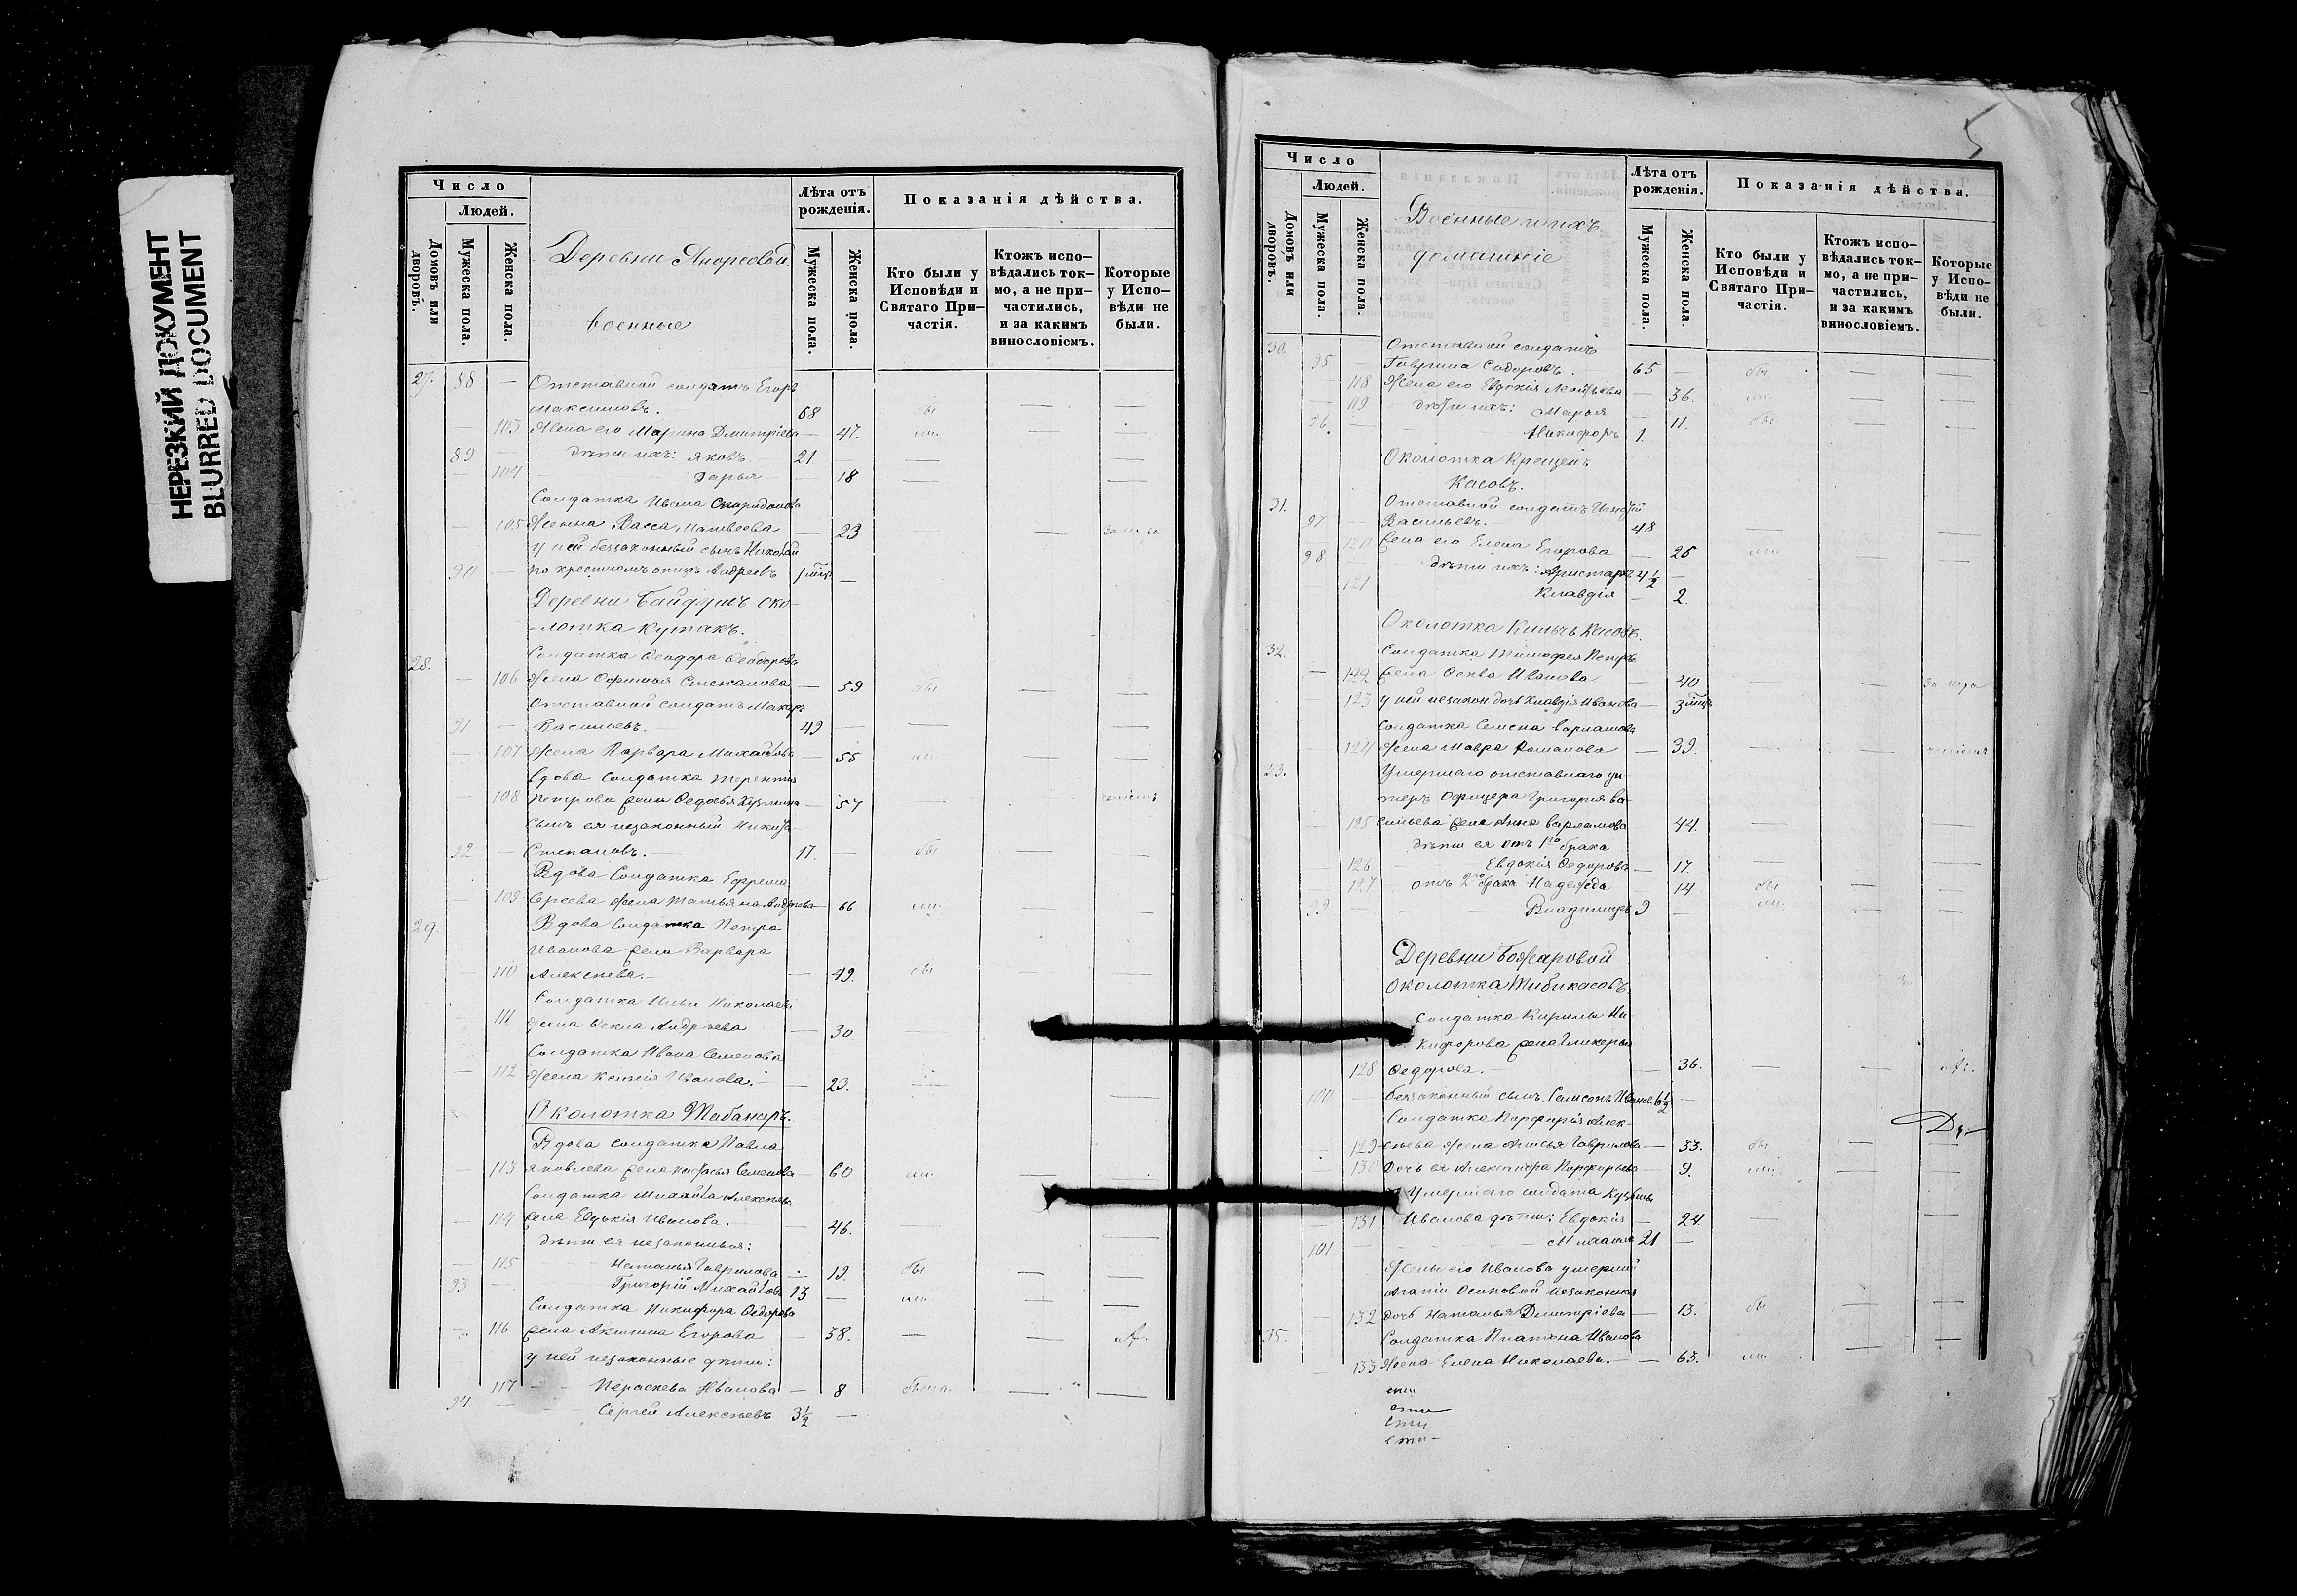 НЕРЕЗКИЙ ДОКУМЕНТ
BLURRED DOCUMENT
Число
Людей.
Домовъ или дворовъ.
Мужеска пола.
Женска пола.
Деревни Андреевой.
военные
Лѣта отъ рожденія.
Мужеска пола.
Женска пола.
Показанія дѣйства.
Кто были у Исповѣди и Святаго Причастія.
Ктожъ исповѣдались токмо, а не причастились, и за какимъ винословіемъ.
Которые у Исповѣди не были.
27. 88 — Отставной солдатъ Егоръ
Максимовъ. 68
103 Жена его Марина Дмитріева — 47.
89 дѣти ихъ: Яковъ 21.
104 Дарья — 18
Солдатка Ивана Спиридонова
105 Жена Васса Матвеева — 23
у ней беззаконный сынъ Николай
90 — по крестномъ отцѣ Андреевъ 1 —
Деревни Байгулъ око-
лотка Кутакъ.
28. Солдатка Ѳеодора Ѳеодорова
106 Жена Офимья Стекалова — 59 бы
Отставной солдатъ Макаръ
91 — Васильевъ. 49 —
107 Жена Варвара Михайлова — 55
Вдова солдатка Терентія
108 Петрова жена Ѳедосья Кузмина — 57
Сынъ ея незаконный Никита
92 — Степановъ. 17. — бы
Вдова Солдатка Ефрема
109 Сергеева жена Татьяна Андреева — 66
29. Вдова Солдатка Петра
Иванова жена Варвара
110 Алексѣева. — 49. бы
Солдатка Ильи Николаева
111 Жена Ѳекла Андреева — 30
Солдатка Ивана Семенова
112 Жена Ксенія Иванова. — 23.
Околотка
Вдова солдатка Павла
113 Яковлева жена Настасья Семенова — 60
Солдатка Михайла Алексѣева
114 жена Евдокія Иванова. — 46.
дѣти ея незаконныя:
115 Наталья Гаврилова — 19. бы
93 Григорій Михайловъ 13 —
Солдатка Никифора Ѳедорова
116 жена Акилина Егорова — 38.
у ней незаконные дѣти:
117 Пераскева Иванова — 8
94 Сергей Алексѣевъ 3½ —
5
Число
Людей.
Домовъ или дворовъ.
Мужеска пола.
Женска пола.
Военные и ихъ
домашніе
Лѣта отъ рожденія.
Мужеска пола.
Женска пола.
Показанія дѣйства.
Кто были у Исповѣди и Святаго Причастія.
Ктожъ исповѣдались токмо, а не причастились, и за какимъ винословіемъ.
Которые у Исповѣди не были.
30. Отставной солдатъ
95 — Гаврила Сидоровъ. 65 — бы
118 Жена его Евдокія Леонтьева — 36.
119 дѣти ихъ: Марья 11. бы
96. Никифоръ 1.
Околотка Крещенъ
Касовъ.
31. Отставной солдатъ Игнатій
97 — Васильевъ. 48
120 жена его Елена Егорова — 25
98 дѣти ихъ: Аристархъ 4½ —
121 Клавдія — 2.
Околотка Кильчъ Касовъ.
32. Солдатка Тимофея Петрова
122 жена Ѳекла Иванова — 40
123 у ней незакон дочь Клавдія Иванова — 3
Солдатка Семена Варламова
124 Жена Мавра Романова — 39.
33. Умершаго отставнаго ун-
теръ Офицера Григорія Ва-
125 сильева жена Анна Варламова 44.
дѣти ея отъ 1го брака
126 Евдокія Ѳедорова — 17.
127 отъ 2го брака Надежда 14 бы
99 Владимиръ 9 —
Деревни Божаровой
Околотка Тибикасовъ.
Солдатка Кирилы Ни-
кифорова жена Гликерья
128 Ѳедорова. — 36.
100 — беззаконный сынъ Самсонъ Ивановъ 6½ —
Солдатка Порфирія Алек-
129 сѣева Жена Анисья Гаврилова — 33. бы
130 Дочь ея Александра Порфирьева — 9.
Умершаго солдата Кузьмы
131 Иванова дѣти: Евдокія — 24.
101 — Михаилъ 21 —
Жены его Ивановa умершей
Агапіи Осиповой незаконная
132 дочь Наталья Дмитріева — 13. бы
35. Солдатка Платона Иванова
133 Жена Елена Николаева. — 63.